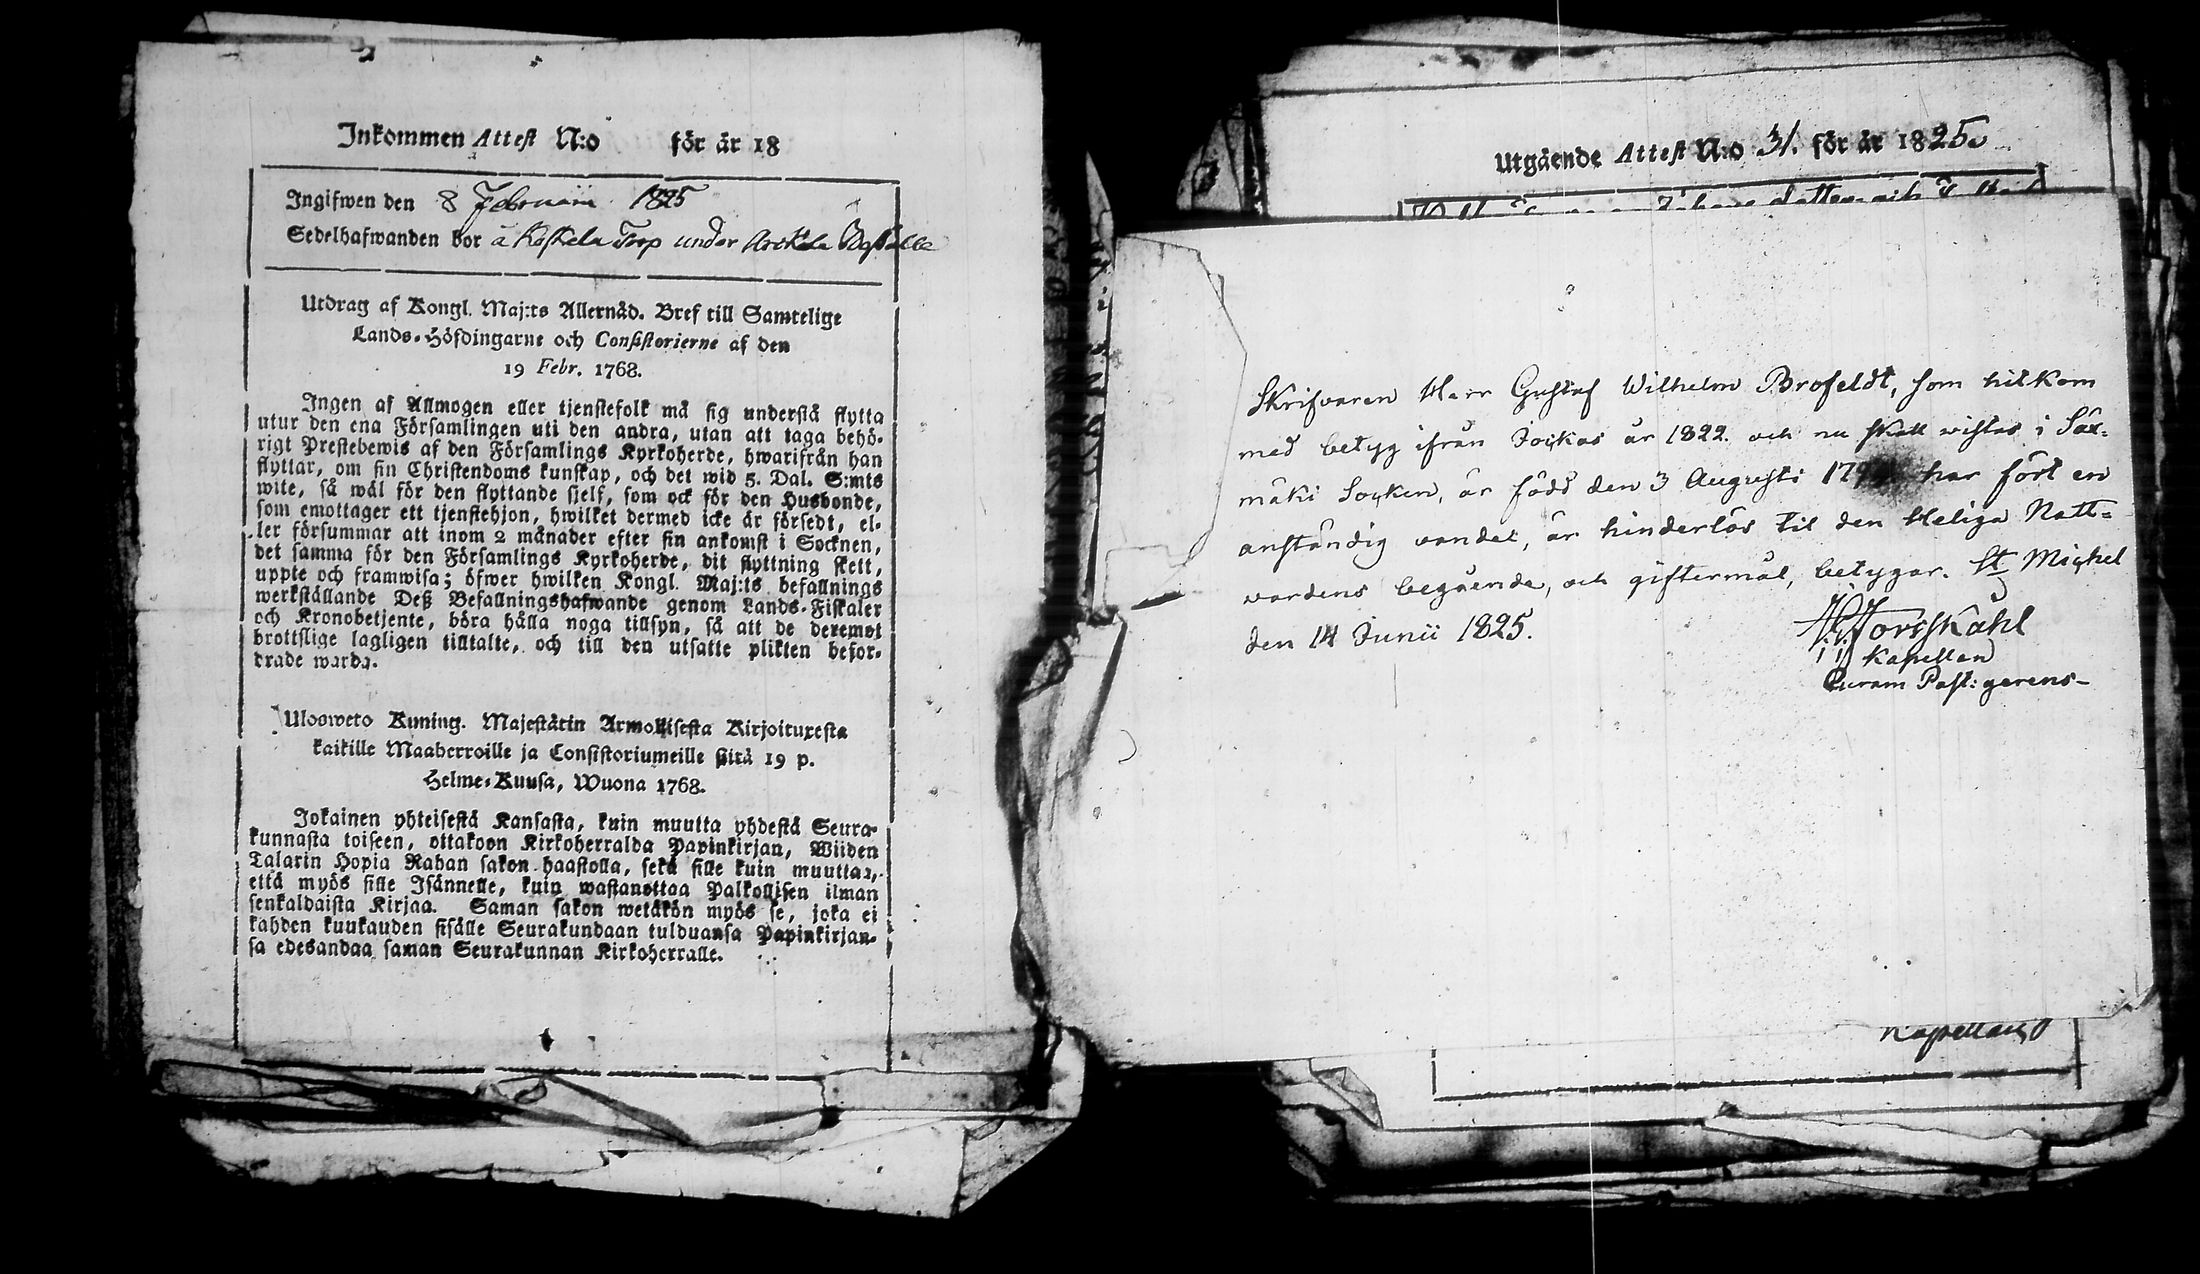 Inkommen Attest N:o för år 18
Ingifwen den 8 Februarii 1825
Sedelhafwanden bor å Koskela Torp under
Utdrag af Kongl. Maj:ts Allernåd. Bref till Samtelige
Lands-Höfdingarne och Consistorierne af den
19 Febr. 1768.
Ingen af Allmogen eller tjenstefolk må sig understå flytta
utur den ena Församlingen uti den andra, utan att taga behö-
rigt Prestebewis af den Församlings Kyrkoherde, hwarifrån han
flyttar, om sin Christendoms kunskap, och det wid 5. Dal. S:mts
wite, så wäl för den flyttande sjelf, som ock för den Husbonde,
som emottager ett tjenstehjon, hwilket dermed icke är försedt, el-
ler försummar att inom 2 månader efter sin ankomst i Socknen,
det samma för den Församlings Kyrkoherde, dit flyttning skett,
uppte och framwisa; öfwer hwilken Kongl. Maj:ts befallnings
werkställande Deß Befallningshafwande genom Lands-Fiskaler
och Kronobetjente, böra hålla noga tillsyn, så att de deremot
brottslige lagligen tilltalte, och till den utsatte plikten befor-
drade warda.
Ulosweto Kuning. Majestätin Armollisesta Kirjoituxesta
kaikille Maaherroille ja Consistoriumeille siitä 19 p.
Helme-Kuusa, Wuona 1768.
Jokainen yhteisestä Kansasta, kuin muutta yhdestä Seura-
kunnasta toiseen, ottakoon Kirkoherralda Papinkirjan, Wiiden
Talarin Hopia Rahan sakon haastolla, sekä sille kuin muuttaa,
että myös sille Isännelle, kuin wastanottaa Palkollisen ilman
senkaldaista Kirjaa. Saman sakon wetäkön myös se, joka ei
kahden kuukauden sisälle Seurakundaan tulduansa Papinkirjan-
sa edesandaa saman Seurakunnan Kirkoherralle.
Utgående Attest N:o 31. för år 1825
Skrifvaren Herr Gustaf Wilhelm Brofeldt, som hitkom
med betyg ifrån Jockas år 1822. och nu skall wistas i Sää-
mäki Socken, är född den 3 Augusti har fört en
anständig vandel, är hinderlös til den Heliga Natt-
vardens begående, och giftermål, betygar. St Michel
den 14 Junii 1825.
Forsskåhl
Kapellan
Curam Past: gerens-
Kapellan